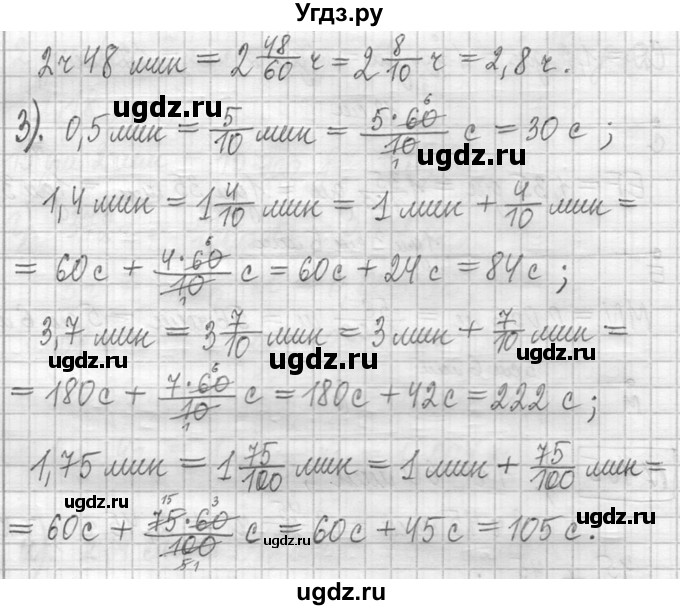 Угдз.ру
2 ч 48 мин = 2 48/60 ч = 2 8/10 ч = 2,8 ч.
ugdz.ru
ugdz.ru
3). 0,5 мин = 5/10 мин = 5·60/10 с = 30 с ;
6
1
ugdz.ru
1,4 мин = 1 4/10 мин = 1 мин + 4/10 мин =
= 60 с + 4·60/10 с = 60 с + 24 с = 84 с ;
6
1
3,7 мин = 3 7/10 мин = 3 мин + 7/10 мин =
ugdz.ru
ugdz.ru
= 180 с + 7·60/10 с = 180 с + 42 с = 222 с ;
6
1
ugdz.ru
1,75 мин = 1 75/100 мин = 1 мин + 75/100 мин =
ugdz.ru
= 60 с + 75·60/100 с = 60 с + 45 с = 105 с.
15 3
5 1
ugdz.ru
ugdz.ru
ugdz.ru